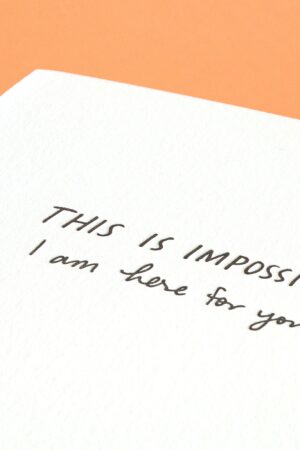 THIS IS IMPOSSI
I am here for you